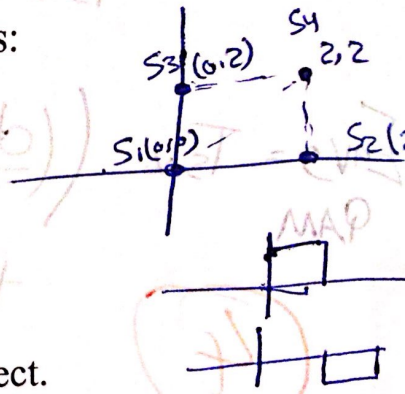 s:
S4
S3 (0,2)
2,2
S1(0,0)
S2(2
MAP
ect.